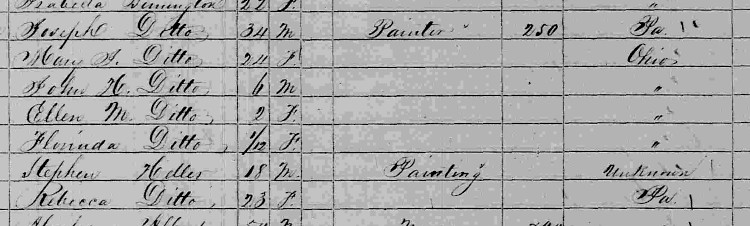 Isabella Dimington 22 F. "
Joseph Ditto 34 M Painter 250 Pa.
Mary J. Ditto 24 F. Ohio
John H. Ditto 6 M "
Ellen M. Ditto, 2 F. "
Florinda Ditto, 1/12 F. "
Stephen Heller 18 M. Painting " unknown
Rebecca Ditto, 23 F. Pa.